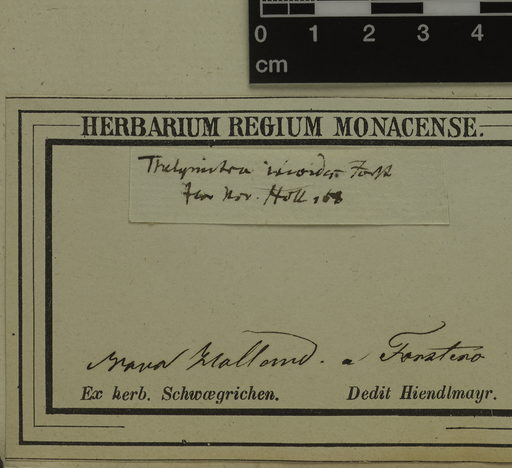 0 1 2 3 4
cm
HERBARIUM REGIUM MONACENSE.
Thelymitra ixioides Forst
Nov. Holl
Nova Holland. a Forstero
Ex herb. Schwægrichen. Dedit Hiendlmayr.